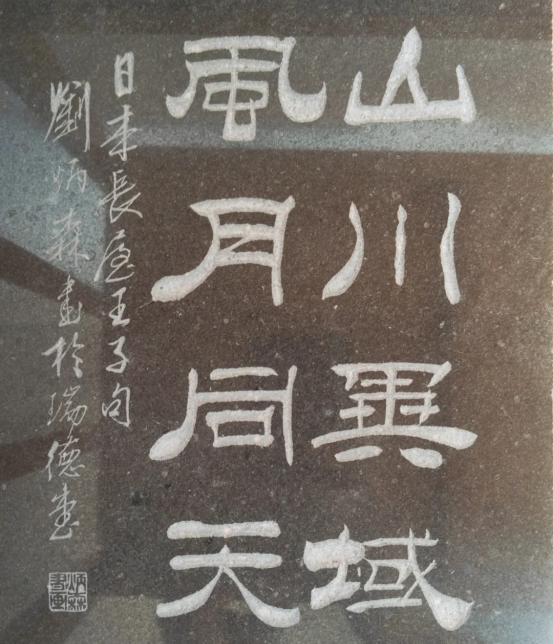 山川異域
風月同天
日本長屋王子句
劉炳森書於瑞德堂
炳森書画